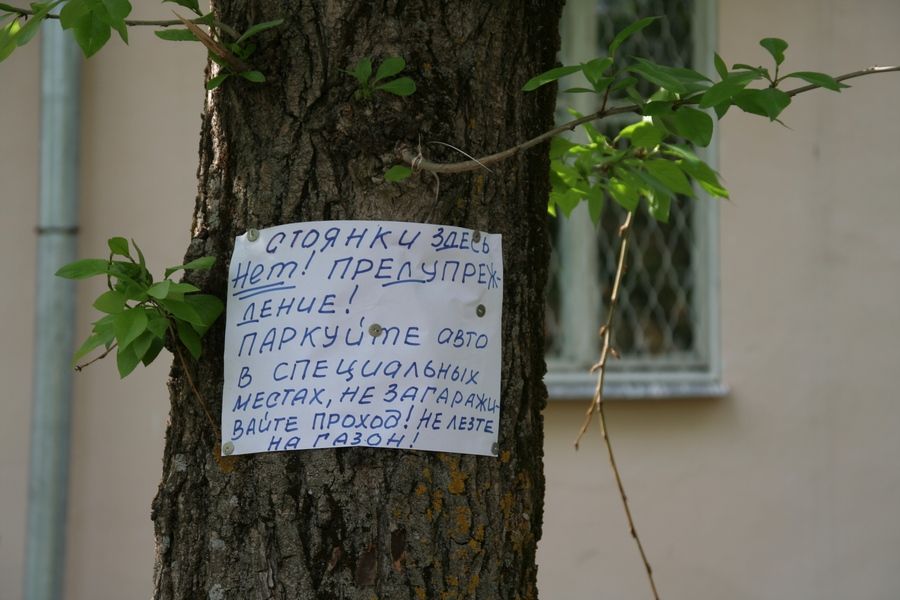 СТОЯНКИ ЗДЕСЬ
НЕТ! ПРЕДУПРЕЖ-
ДЕНИЕ!
ПАРКУЙТЕ АВТО
В СПЕЦИАЛЬНЫХ
МЕСТАХ, НЕ ЗАГАРАЖИ-
ВАЙТЕ ПРОХОД! НЕ ЛЕЗТЕ
НА ГАЗОН!